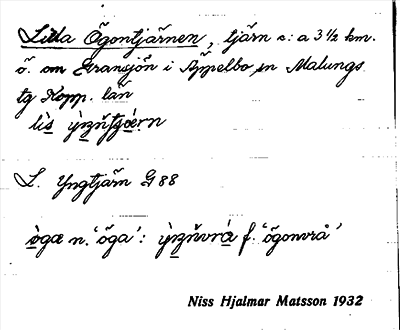 Litla Ögontjärnen, tjärn c:a 3 ½ km.
ö. om Gransjön i Äppelbo sn Malungs
tg Kopp. län
L. Yngtjärn G 88
n. 'öga': f. 'ögonvrå'
Niss Hjalmar Matsson 1932